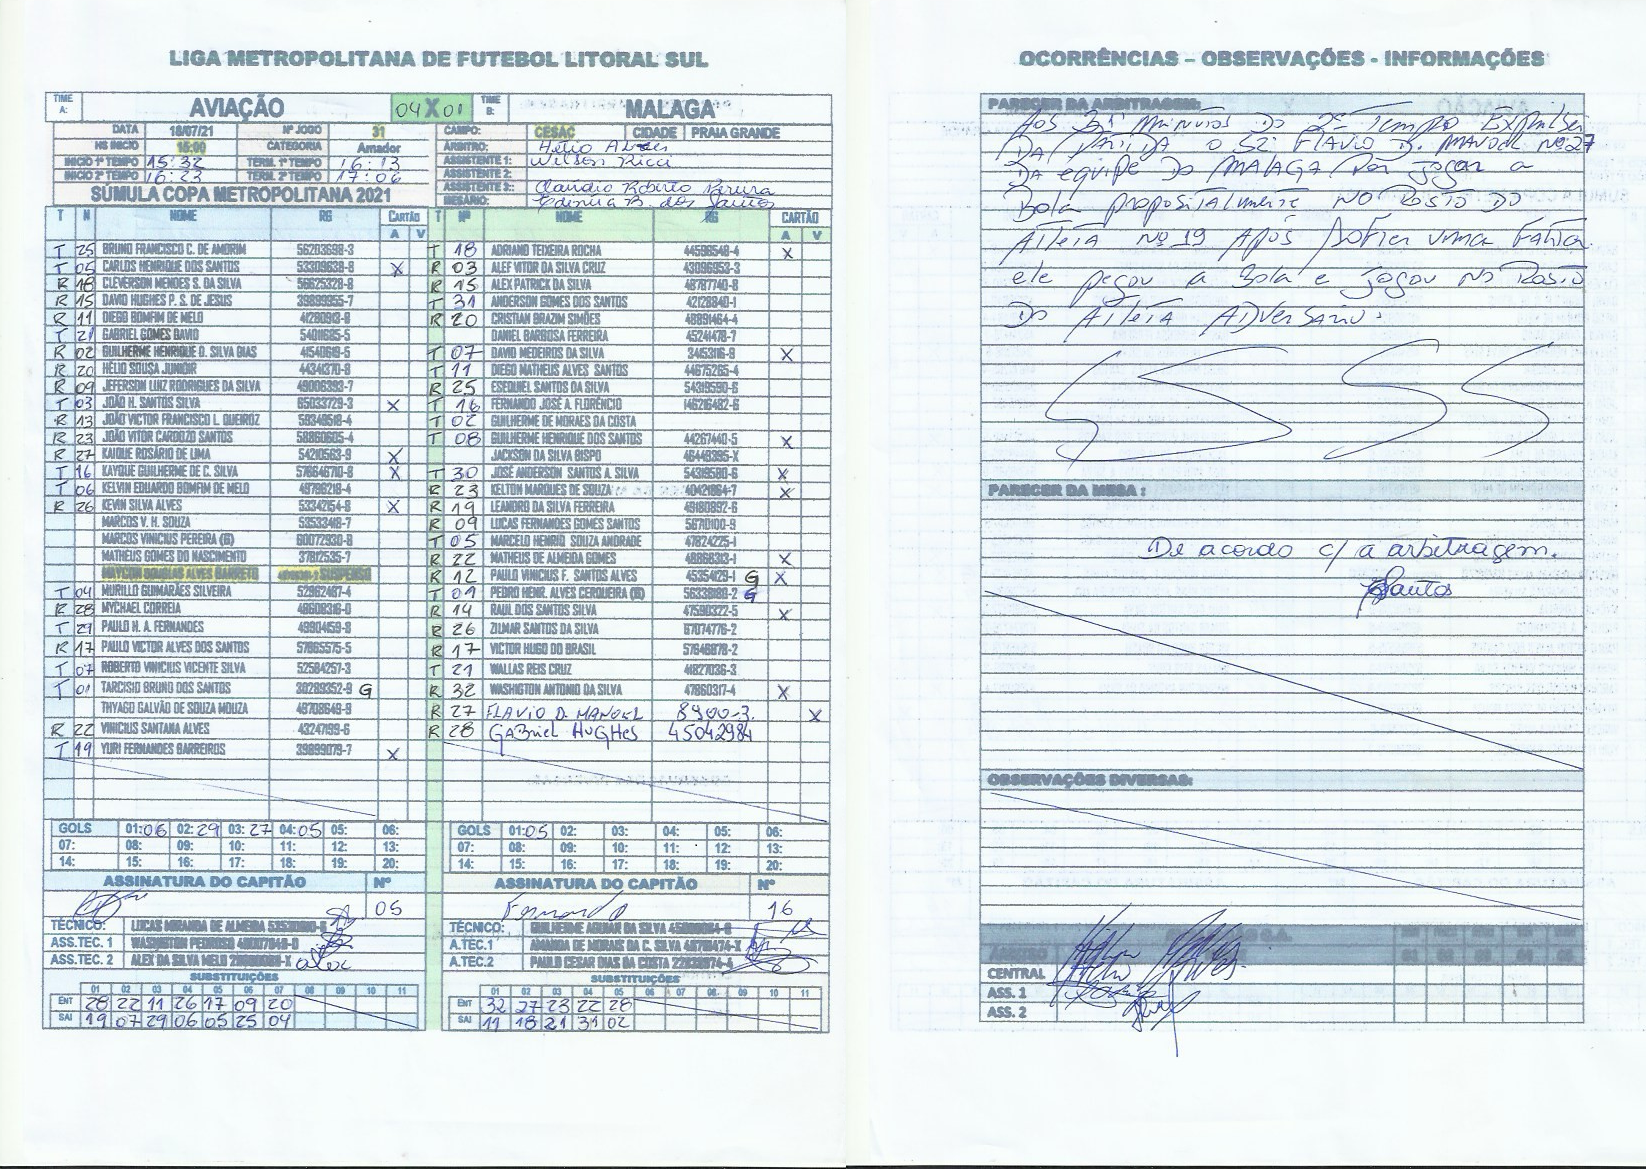 LIGA METROPOLITANA DE FUTEBOL LITORAL SUL
TIME A: AVIAÇÃO 04 X 01 TIME B: MALAGA
DATA 18/07/21 Nº JOGO 31 CAMPO: CESAC CIDADE PRAIA GRANDE
HS INICIO 15:00 CATEGORIA Amador ÁRBITRO: Hélio Alves
INICIO 1º TEMPO 15:32 TERM. 1º TEMPO 16:13 ASSISTENTE 1: Wilson Ricci
INICIO 2º TEMPO 16:23 TERM. 2º TEMPO 17:06 ASSISTENTE 2:
SÚMULA COPA METROPOLITANA 2021 ASSISTENTE 3: Claudio Roberto Pereira
MESÁRIO: B. dos Santos
T N NOME RG CARTÃO A V
T 25 BRUNO FRANCISCO C. DE AMORIM 56203698-3
T 05 CARLOS HENRIQUE DOS SANTOS 53309638-8 X
R 18 CLEVERSON MENDES S. DA SILVA 56625328-8
R 15 DAVID HUGHES P. S. DE JESUS 39899955-7
R 11 DIEGO BOMFIM DE MELO 41280913-8
T 21 GABRIEL GOMES DAVID 54011685-5
R 02 GUILHERME HENRIQUE D. SILVA DIAS 41540619-5
R 20 HÉLIO SOUSA JUNIOR 44341370-8
R 09 JEFERSON LUIZ RODRIGUES DA SILVA 49006393-7
T 03 JOÃO H. SANTOS SILVA 65033729-3 X
R 13 JOÃO VICTOR FRANCISCO L. QUEIROZ 59340518-4
R 23 JOÃO VITOR CARDOZO SANTOS 58860605-4
R 27 KAIQUE ROSÁRIO DE LIMA 54210563-9 X
T 16 KAYQUE GUILHERME DE C. SILVA 576646710-8 X
T 06 KELVIN EDUARDO BOMFIM DE MELO 49796218-4
R 26 KEVIN SILVA ALVES 53342154-8 X
MARCOS V. H. SOUZA 53533418-7
MARCOS VINICIUS PEREIRA (G) 60072930-8
MATHEUS GOMES DO NASCIMENTO 37812535-7
MAYCON DOUGLAS ALVES BARRETO SUSPENSO
T 04 MURILLO GUIMARÃES SILVEIRA 52962467-4
R 28 MYCHAEL CORREIA 48608316-0
T 29 PAULO H. A. FERNANDES 49904459-8
R 17 PAULO VICTOR ALVES DOS SANTOS 57665575-5
T 07 ROBERTO VINICIUS VICENTE SILVA 52564257-3
T 01 TARCISIO BRUNO DOS SANTOS 30289352-9 G
THYAGO GALVÃO DE SOUZA MOUZA 48708649-8
R 22 VINICIUS SANTANA ALVES 43247199-6
T 19 YURI FERNANDES BARREIROS 39899079-7 X
GOLS 01:06 02:29 03:27 04:05 05: 06:
07: 08: 09: 10: 11: 12: 13:
14: 15: 16: 17: 18: 19: 20:
ASSINATURA DO CAPITÃO Nº
05
TÉCNICO: LUCAS MIRANDA DE ALMEIDA
ASS.TEC. 1 WASHINGTON PEDROSO
ASS.TEC. 2 ALEX DA SILVA MELO alex
SUBSTITUIÇÕES
01 02 03 04 05 06 07 08 09 10 11
ENT 28 22 11 26 17 09 20
SAI 19 07 29 06 05 25 04
T Nº NOME RG CARTÃO A V
T 18 ADRIANO TEIXEIRA ROCHA 44596548-4 X
R 03 ALEF VITOR DA SILVA CRUZ 43096953-3
R 15 ALEX PATRICK DA SILVA 48787740-8
T 31 ANDERSON GOMES DOS SANTOS 42128840-1
R 20 CRISTIAN BRAZIM SIMÕES 48891464-4
DANIEL BARBOSA FERREIRA 45241478-7
T 07 DAVID MEDEIROS DA SILVA 3445316-9 X
T 11 DIEGO MATHEUS ALVES SANTOS 44675265-4
R 25 ESEQUIEL SANTOS DA SILVA 54319590-6
T 16 FERNANDO JOSÉ A. FLORÊNCIO 146216482-6
T 02 GUILHERME DE MORAES DA COSTA
T 08 GUILHERME HENRIQUE DOS SANTOS 44267440-5 X
JACKSON DA SILVA BISPO 46449395-X
T 30 JOSÉ ANDERSON SANTOS A. SILVA 54319580-6 X
R 23 KELTON MARQUES DE SOUZA 40421864-7 X
R 19 LEANDRO DA SILVA FERREIRA 49180892-6
R 09 LUCAS FERNANDES GOMES SANTOS 56710100-9
T 05 MARCELO HENRIQ SOUZA ANDRADE 47824225-1
R 22 MATHEUS DE ALMEIDA GOMES 48868313-1 X
R 12 PAULO VINICIUS F. SANTOS ALVES 45354129-1 G X
T 01 PEDRO HENR. ALVES CERQUEIRA (G) 56338180-2 G
R 14 RAUL DOS SANTOS SILVA 47590322-5 X
R 26 ZILMAR SANTOS DA SILVA 67074776-2
R 17 VICTOR HUGO DO BRASIL 57646878-2
T 21 WALLAS REIS CRUZ 41827036-3
R 32 WASHIGTON ANTONIO DA SILVA 47860317-4 X
R 27 FLAVIO D. MANOEL 8900-3 X
R 28 GABriel HUGHes 45042984
GOLS 01:05 02: 03: 04: 05: 06:
07: 08: 09: 10: 11: 12: 13:
14: 15: 16: 17: 18: 19: 20:
ASSINATURA DO CAPITÃO Nº
Fernando 16
TÉCNICO: GUILHERME AGUIAR DA SILVA
A.TEC.1 AMANDA DE MORAIS DA C. SILVA
A.TEC.2 PAULO CESAR DIAS DA COSTA
SUBSTITUIÇÕES
01 02 03 04 05 06 07 08 09 10 11
ENT 32 27 23 22 28
SAI 11 18 21 31 02
OCORRÊNCIAS – OBSERVAÇÕES - INFORMAÇÕES
PARECER DA ARBITRAGEM:
Aos 31 minutos do 2º Tempo Expulsei
DA PARTIDA o Sr. FLAVIO D. MANOEL Nº 27
DA equipe do MALAGA Por jogar a
Bola propositalmente NO Rosto DO
Atleta Nº 19 Após sofrer uma Falta
ele pegou a Bola e jogou no Rosto
Do Atleta ADVersario.
PARECER DA MESA :
De acordo c/ a arbitragem.
Santos
OBSERVAÇÕES DIVERSAS:
CENTRAL
ASS. 1
ASS. 2